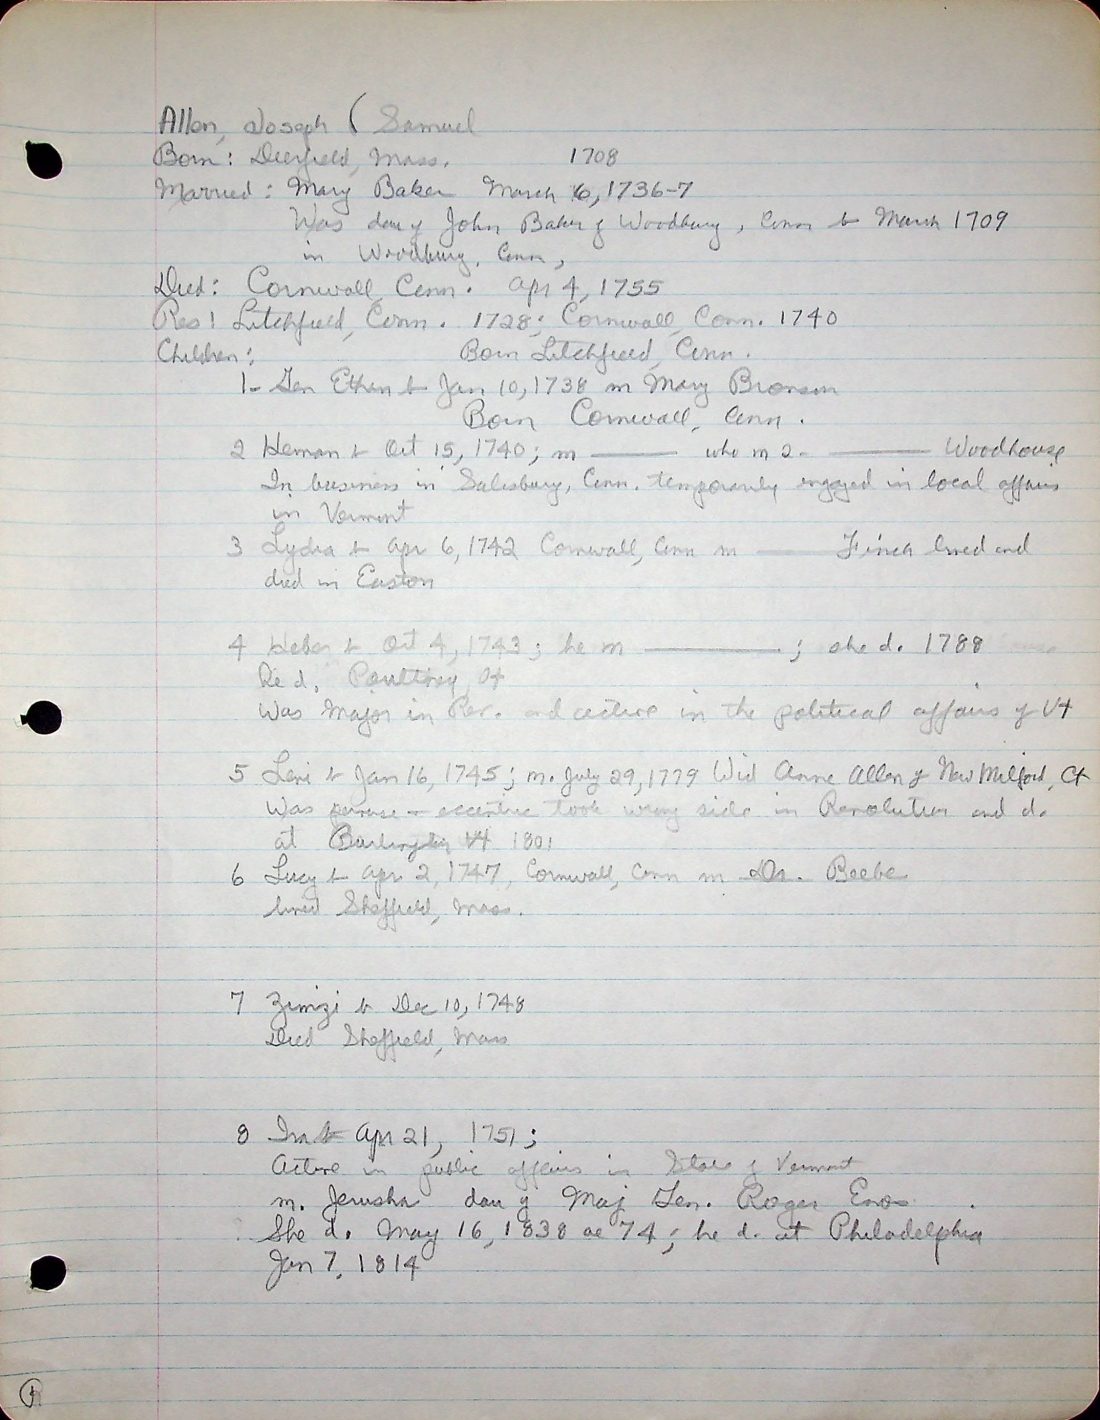 Allen, Joseph ( Samuel
Born: Deerfield, Mass. 1708
Married: Mary Baker March 6, 1736-7
Was dau of John Baker of Woodbury, Conn b March 1709
in Woodbury, Conn,
Died: Cornwall, Conn. Apr 4, 1755
Res: Litchfield, Conn. 1728; Cornwall, Conn. 1740
Children: Born Litchfield, Conn.
1- Gen Ethan b Jan 10, 1738 m Mary Bronson
Born Cornwall, Conn.
2 Heman b Oct 15, 1740; m ——— who m 2- ——— Woodhouse
In business in Salisbury, Conn. temporarily engaged in local affairs
in Vermont
3 Lydia b Apr 6, 1742 Cornwall, Conn m ——— Finch lived and
died in Easton
4 Heber b Oct 4, 1743; he m ———; she d. 1788
He d. Poultney, Vt
Was Major in Rev. and active in the political affairs of Vt
5 Levi b Jan 16, 1745; m. July 29, 1779 Wid Anne Allen of New Milford, Ct
Was eccentric took wrong side in Revolution and d.
at Burlington Vt 1801
6 Lucy b Apr 2, 1747, Cornwall, Conn m Dr. Beebe
lived Sheffield, Mass.
7 Zimzi b Dec 10, 1748
Died Sheffield, Mass
8 Ira b Apr 21, 1751;
Active in public affairs in State of Vermont
m. Jerusha dau of Maj Gen. Roger Enos
She d. May 16, 1838 ae 74; he d. at Philadelphia
Jan 7, 1814